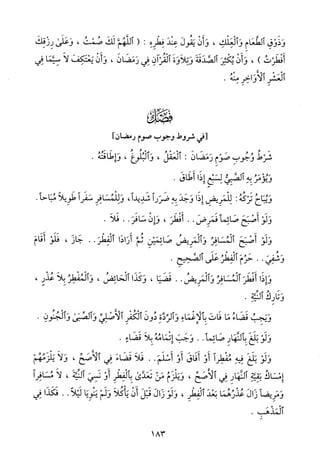 وَذَوْقِ ٱلطَّعَامِ وَٱلْعِلْكِ ، وَأَنْ يَقُولَ عِنْدَ فِطْرِهِ : ( اَللَّهُمَّ لَكَ صُمْتُ ، وَعَلَىٰ رِزْقِكَ
أَفْطَرْتُ ) ، وَأَنْ يُكْثِرَ ٱلصَّدَقَةَ وَتِلاَوَةَ ٱلْقُرْآنِ فِي رَمَضَانَ ، وَأَنْ يَعْتَكِفَ لاَ سِيَّمَا فِي
ٱلْعَشْرِ ٱلأَوَاخِرِ مِنْهُ .
فَصْلٌ
[في شروط وجوب صوم رمضان]
شَرْطُ وُجُوبِ صَوْمِ رَمَضَانَ : ٱلْعَقْلُ ، وَٱلْبُلُوغُ ، وَإِطَاقَتُهُ .
وَيُؤْمَرُ بِهِ ٱلصَّبِيُّ لِسَبْعٍ إِذَا أَطَاقَ .
وَيُبَاحُ تَرْكُهُ : لِلْمَرِيضِ إِذَا وَجَدَ بِهِ ضَرَراً شَدِيداً ، وَلِلْمُسَافِرِ سَفَراً طَوِيلاً مُبَاحاً .
وَلَوْ أَصْبَحَ صَائِماً فَمَرِضَ .. أَفْطَرَ ، وَإِنْ سَافَرَ .. فَلاَ .
وَلَوْ أَصْبَحَ ٱلْمُسَافِرُ وَٱلْمَرِيضُ صَائِمَيْنِ ثُمَّ أَرَادَا ٱلْفِطْرَ .. جَازَ ، فَلَوْ أَقَامَ
وَشُفِيَ .. حَرُمَ ٱلْفِطْرُ عَلَى ٱلصَّحِيحِ .
وَإِذَا أَفْطَرَ ٱلْمُسَافِرُ وَٱلْمَرِيضُ .. قَضَيَا ، وَكَذَا ٱلْحَائِضُ ، وَٱلْمُفْطِرُ بِلاَ عُذْرٍ ،
وَتَارِكُ ٱلنِّيَّةِ .
وَيَجِبُ قَضَاءُ مَا فَاتَ بِٱلإِغْمَاءِ وَٱلرِّدَّةِ دُونَ ٱلْكُفْرِ ٱلأَصْلِيِّ وَٱلصِّبَىٰ وَٱلْجُنُونِ .
وَلَوْ بَلَغَ بِٱلنَّهَارِ صَائِماً .. وَجَبَ إِتْمَامُهُ بِلاَ قَضَاءٍ .
وَلَوْ بَلَغَ فِيهِ مُفْطِراً أَوْ أَفَاقَ أَوْ أَسْلَمَ .. فَلاَ قَضَاءَ فِي ٱلأَصَحِّ ، وَلاَ يَلْزَمُهُمْ
إِمْسَاكُ بَقِيَّةِ ٱلنَّهَارِ فِي ٱلأَصَحِّ ، وَيَلْزَمُ مَنْ تَعَدَّىٰ بِٱلْفِطْرِ أَوْ نَسِيَ ٱلنِّيَّةَ ، لاَ مُسَافِراً
وَمَرِيضاً زَالَ عُذْرُهُمَا بَعْدَ ٱلْفِطْرِ ، وَلَوْ زَالَ قَبْلَ أَنْ يَأْكُلاَ وَلَمْ يَنْوِيَا لَيْلاً .. فَكَذَا فِي
ٱلْمَذْهَبِ .
١٨٣